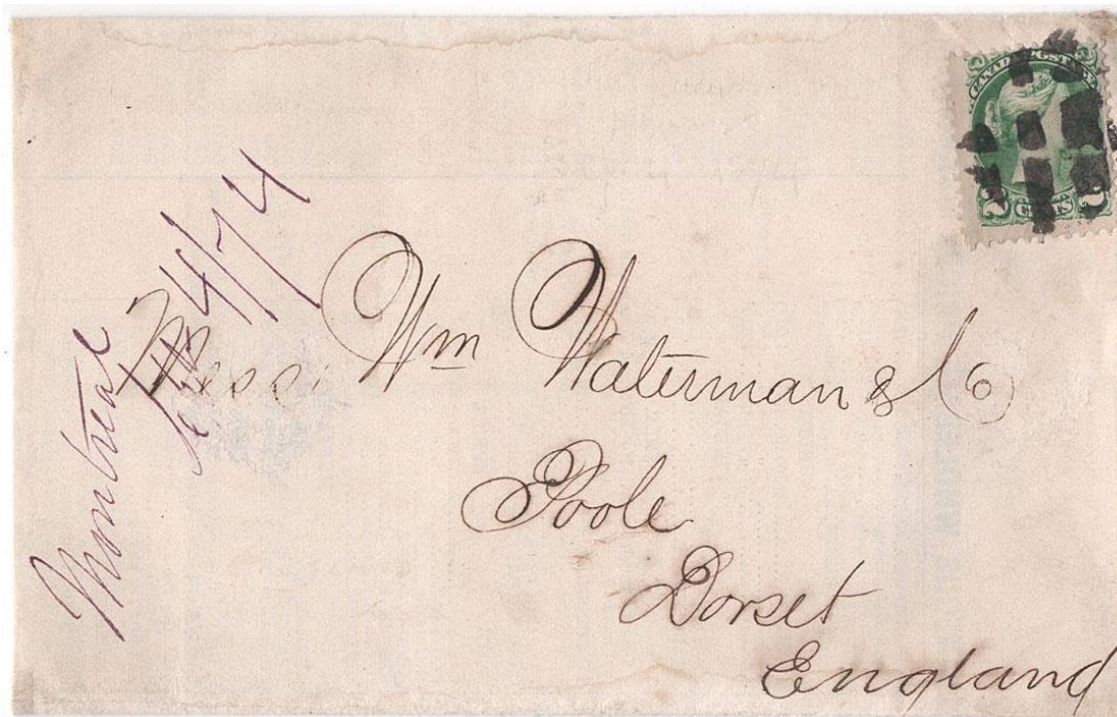 CANADA POSTAGE
2 CENTS 2
Montreal
4/74
Mess. Wm Waterman & Co
Poole
Dorset
England